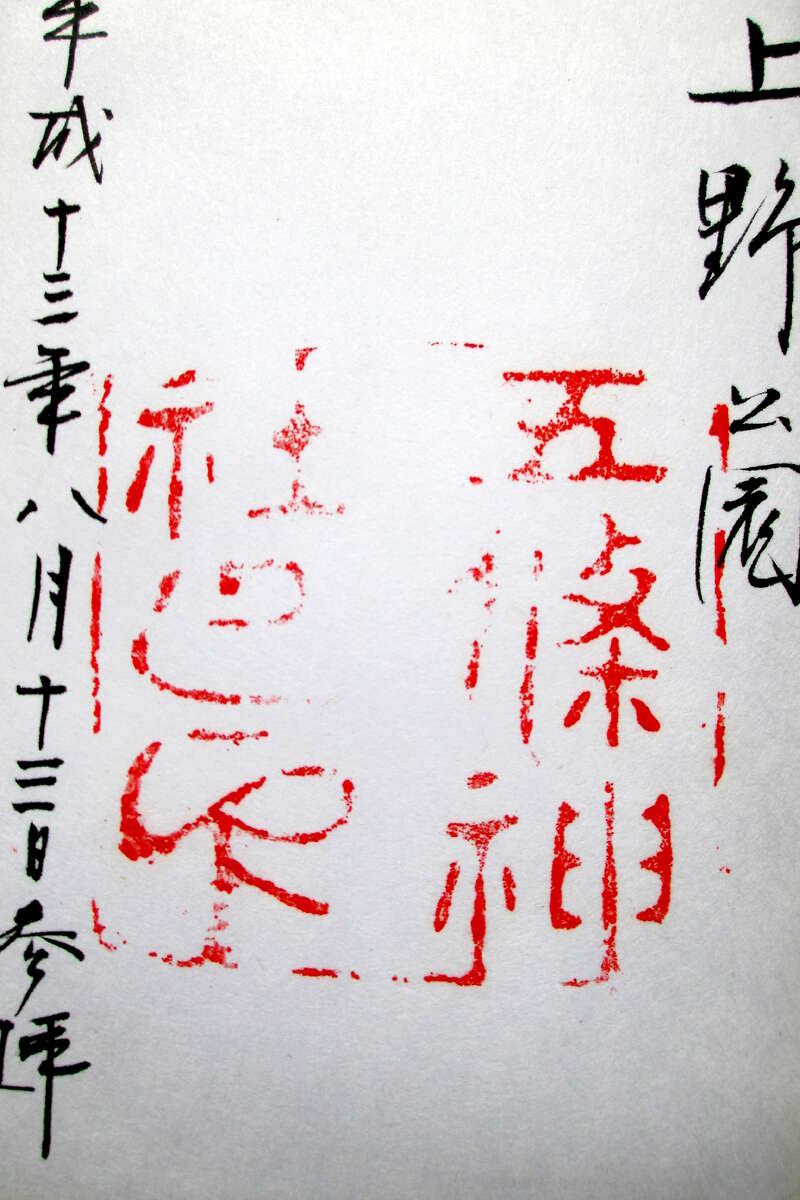 上野公園
五條神
社
平成十三年八月十三日参拝